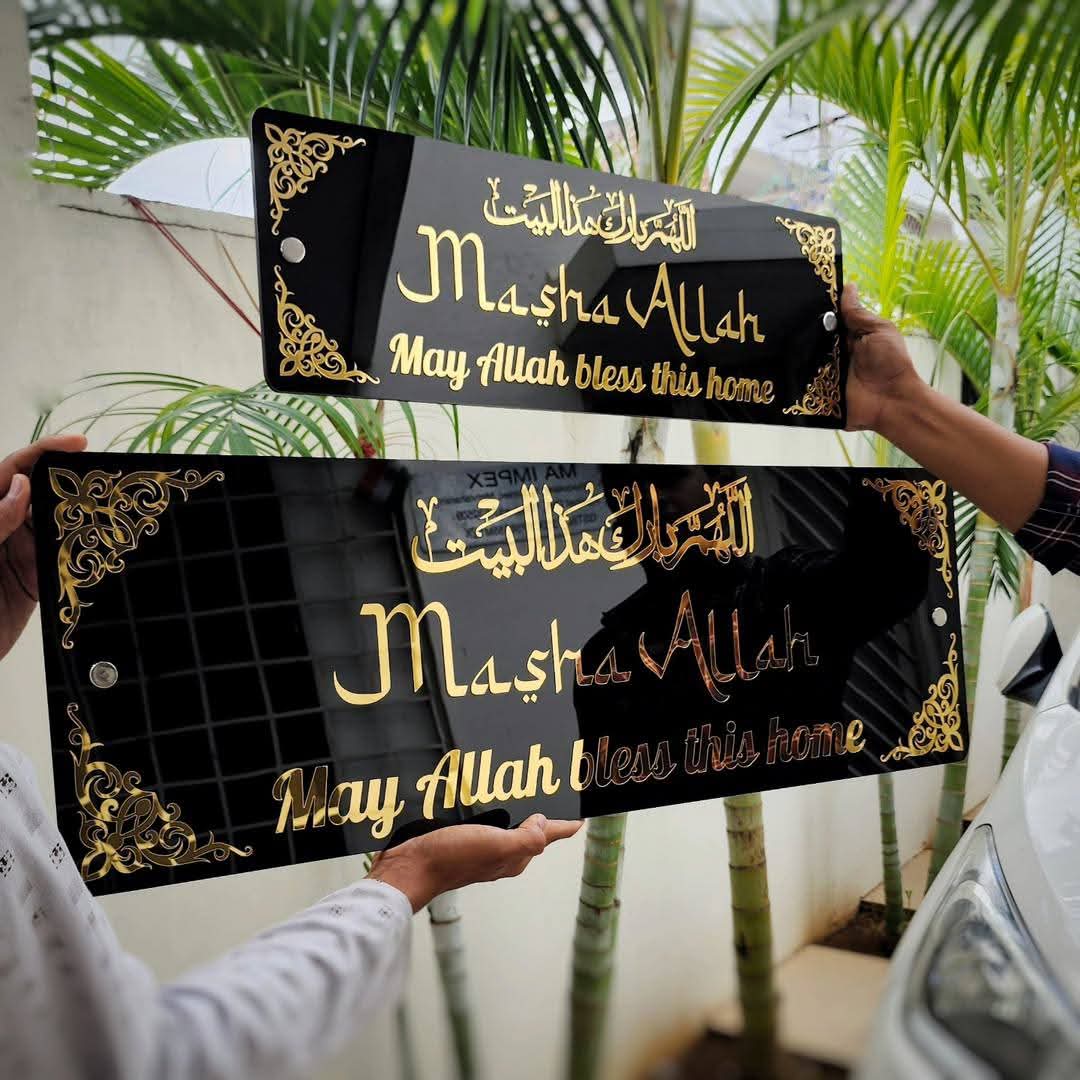 اللّهُمَّ بَارِك هَذا البَيت
Masha Allah
May Allah bless this home
MA IMPEX
اللّهُمَّ بَارِك هَذا البَيت
Masha Allah
May Allah bless this home